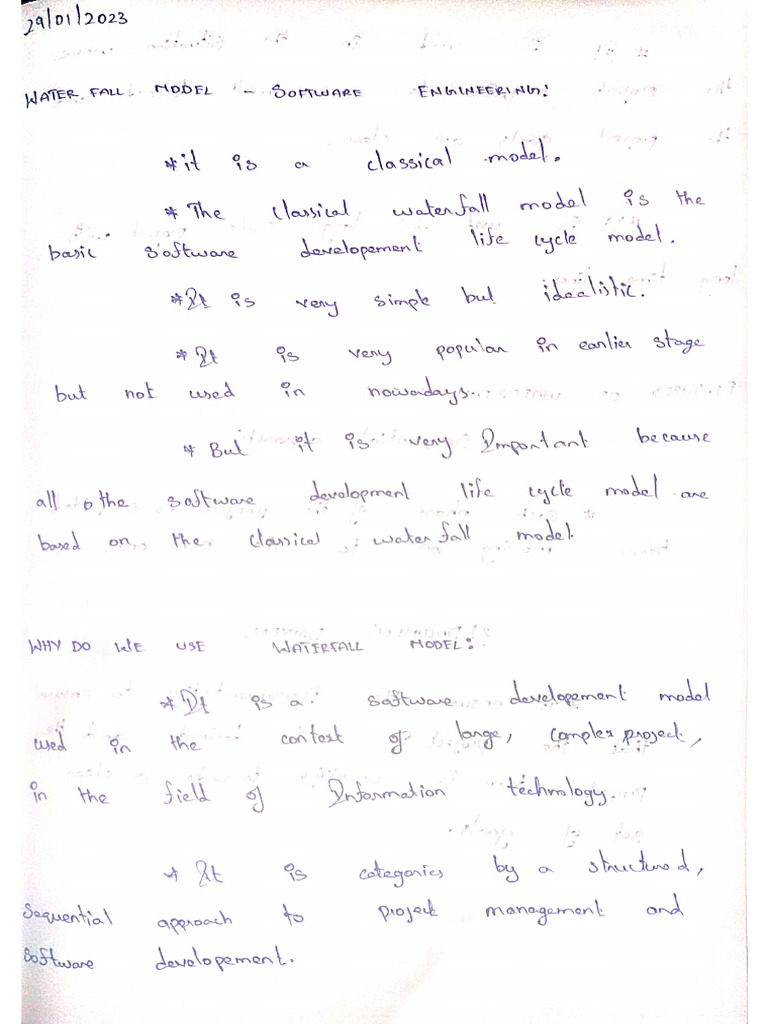 29/01/2023
WATER FALL MODEL - SOFTWARE ENGINEERING:
* it is a classical model.
* The classical waterfall model is the
basic software developement life cycle model.
* It is very simple but idealistic.
* It is very popular in earlier stage
but not used in nowadays.
* But it is very Important because
all the software development life cycle model are
based on the classical waterfall model.
WHY DO WE USE WATERFALL MODEL:
* It is a software developement model
used in the context of large, complex project,
in the field of Information technology.
* It is categories by a structured,
Sequential approach to project management and
Software developement.